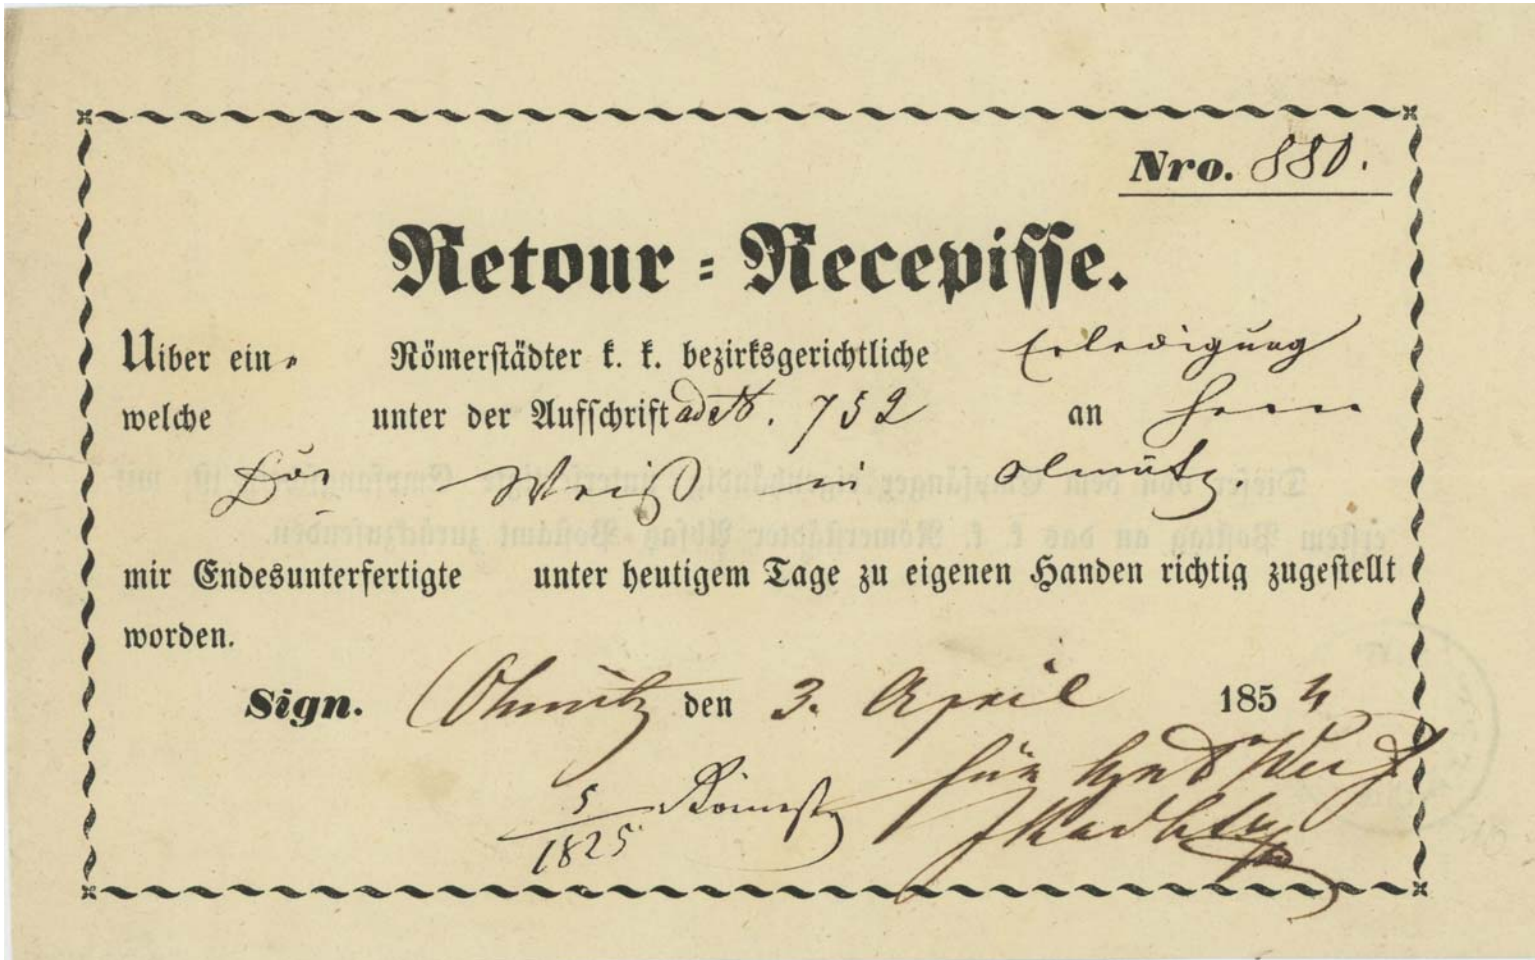 Nro. 880.
Retour-Recepisse.
Uiber ein Römerstädter k. k. bezirksgerichtliche Erledigung
welche unter der Aufschrift 752 an Herrn
Weiß in Olmütz.
mir Endesunterfertigte unter heutigem Tage zu eigenen Handen richtig zugestellt
worden.
Sign. Olmütz den 3. April 1854
für
5
1825